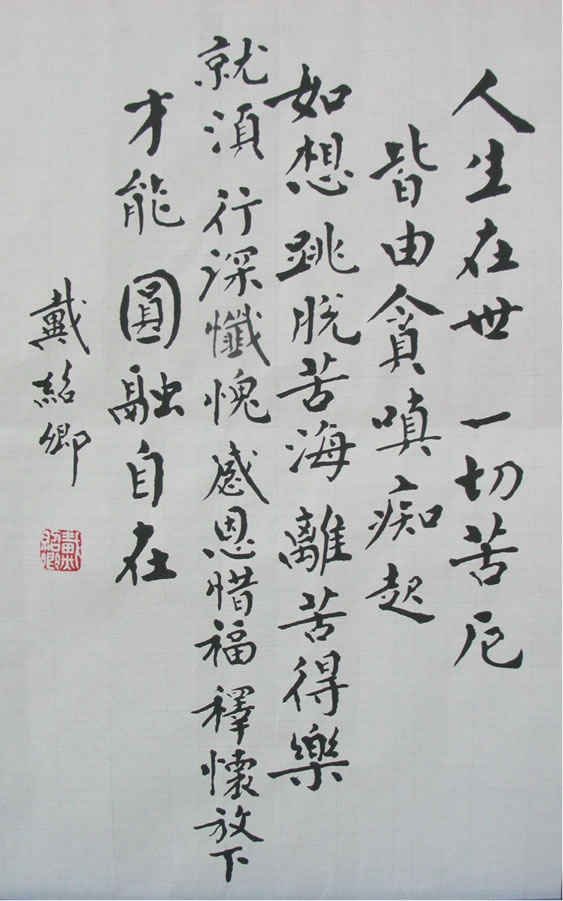 人生在世 一切苦厄
皆由貪嗔痴起
如想 跳脱苦海 離苦得樂
就須 行深懺愧 感恩惜福 釋懷放下
才能 圓融自在
戴紹卿